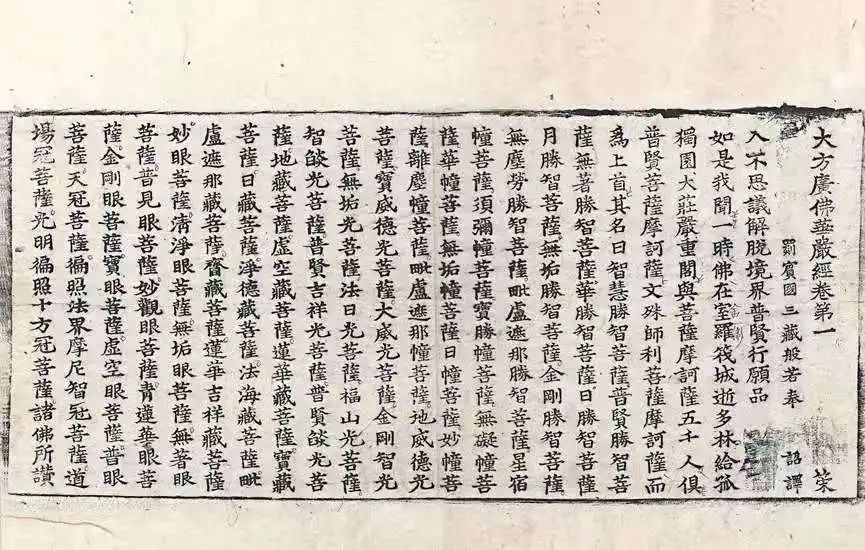 大方廣佛華嚴經卷第一
罽賓國三藏般若奉 詔譯
入不思議解脫境界普賢行願品
如是我聞一時佛在室羅筏城逝多林給孤
獨園大莊嚴重閣與菩薩摩訶薩五千人俱
普賢菩薩摩訶薩文殊師利菩薩摩訶薩而
為上首其名曰智慧勝智菩薩普賢勝智菩
薩無著勝智菩薩華勝智菩薩日勝智菩薩
月勝智菩薩無垢勝智菩薩金剛勝智菩薩
無塵勞勝智菩薩毗盧遮那勝智菩薩星宿
幢菩薩須彌幢菩薩寶勝幢菩薩無礙幢菩
薩華幢菩薩無垢幢菩薩日幢菩薩妙幢菩
薩離塵幢菩薩毗盧遮那幢菩薩地威德光
菩薩寶威德光菩薩大威光菩薩金剛智光
菩薩無垢光菩薩法日光菩薩福山光菩薩
智燄光菩薩普賢吉祥光菩薩普賢燄光菩
薩地藏菩薩虛空藏菩薩蓮華藏菩薩寶藏
菩薩日藏菩薩淨德藏菩薩法海藏菩薩毗
盧遮那藏菩薩齎藏菩薩蓮華吉祥藏菩薩
妙眼菩薩清淨眼菩薩無垢眼菩薩無著眼
菩薩普見眼菩薩妙觀眼菩薩青蓮華眼菩
薩金剛眼菩薩寶眼菩薩虛空眼菩薩普眼
菩薩天冠菩薩徧照法界摩尼智冠菩薩道
場冠菩薩光明徧照十方冠菩薩諸佛所讚